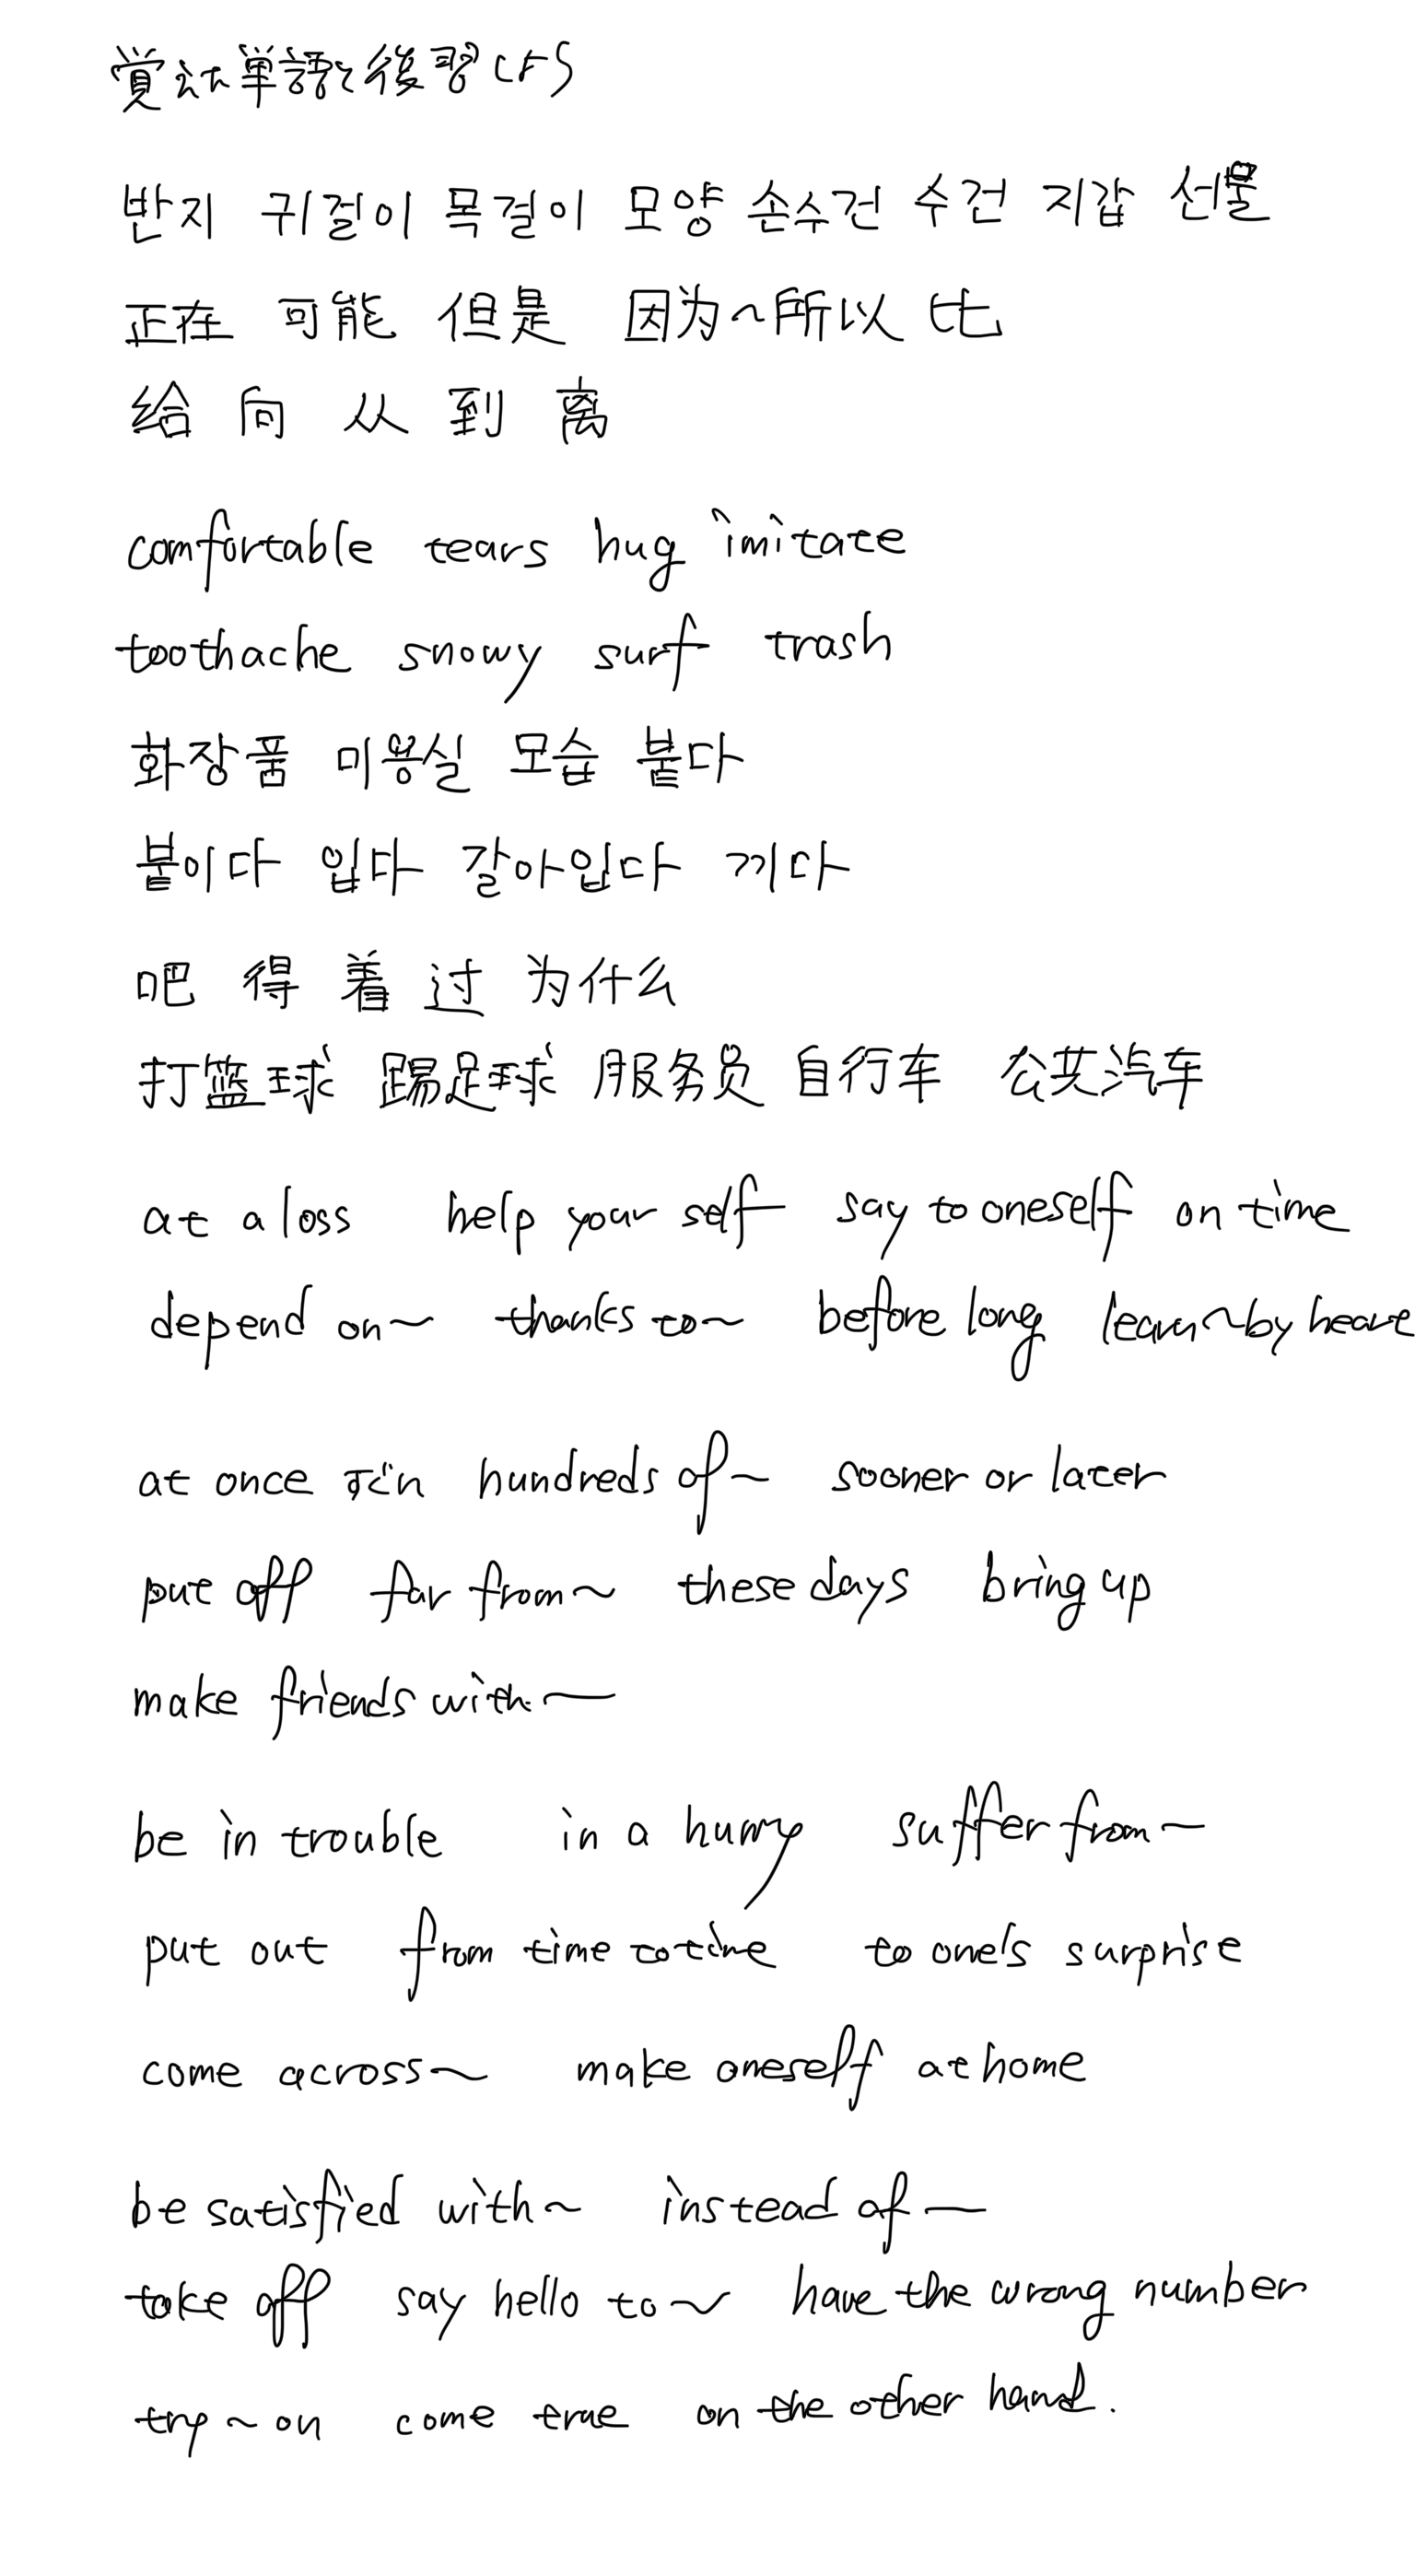 覚えた単語を後習しよう
반지 귀걸이 목걸이 모양 손수건 수건 지갑 선물
正在 可能 但是 因为~所以 比
给 向 从 到 离
comfortable tears hug imitate
toothache snowy surf trash
화장품 미용실 모습 붙다
붙이다 입다 갈아입다 끼다
吧 得 着 过 为什么
打篮球 踢足球 服务员 自行车 公共汽车
at a loss help your self say to oneself on time
depend on~ thanks to~ before long learn~by heart
at once hundreds of~ sooner or later
put off far from~ these days bring up
make friends with~
be in trouble in a hurry suffer from~
put out from time to time to one's surprise
come across~ make oneself at home
be satisfied with~ instead of~
take off say hello to~ have the wrong number
try~on come true on the other hand.